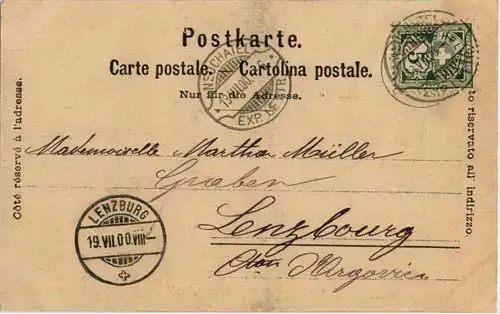 Postkarte.
Carte postale. Cartolina postale.
Nur für die Adresse.
Côté réservé à l'adresse.
Lato riservato all' indirizzo.
NEUCHATEL
19.VII.00
EXP. LETTR.
5
Mademoiselle Martha Müller
Graben
Lenzbourg
Cton d'Argovie
LENZBURG
19.VII.00.VIII–